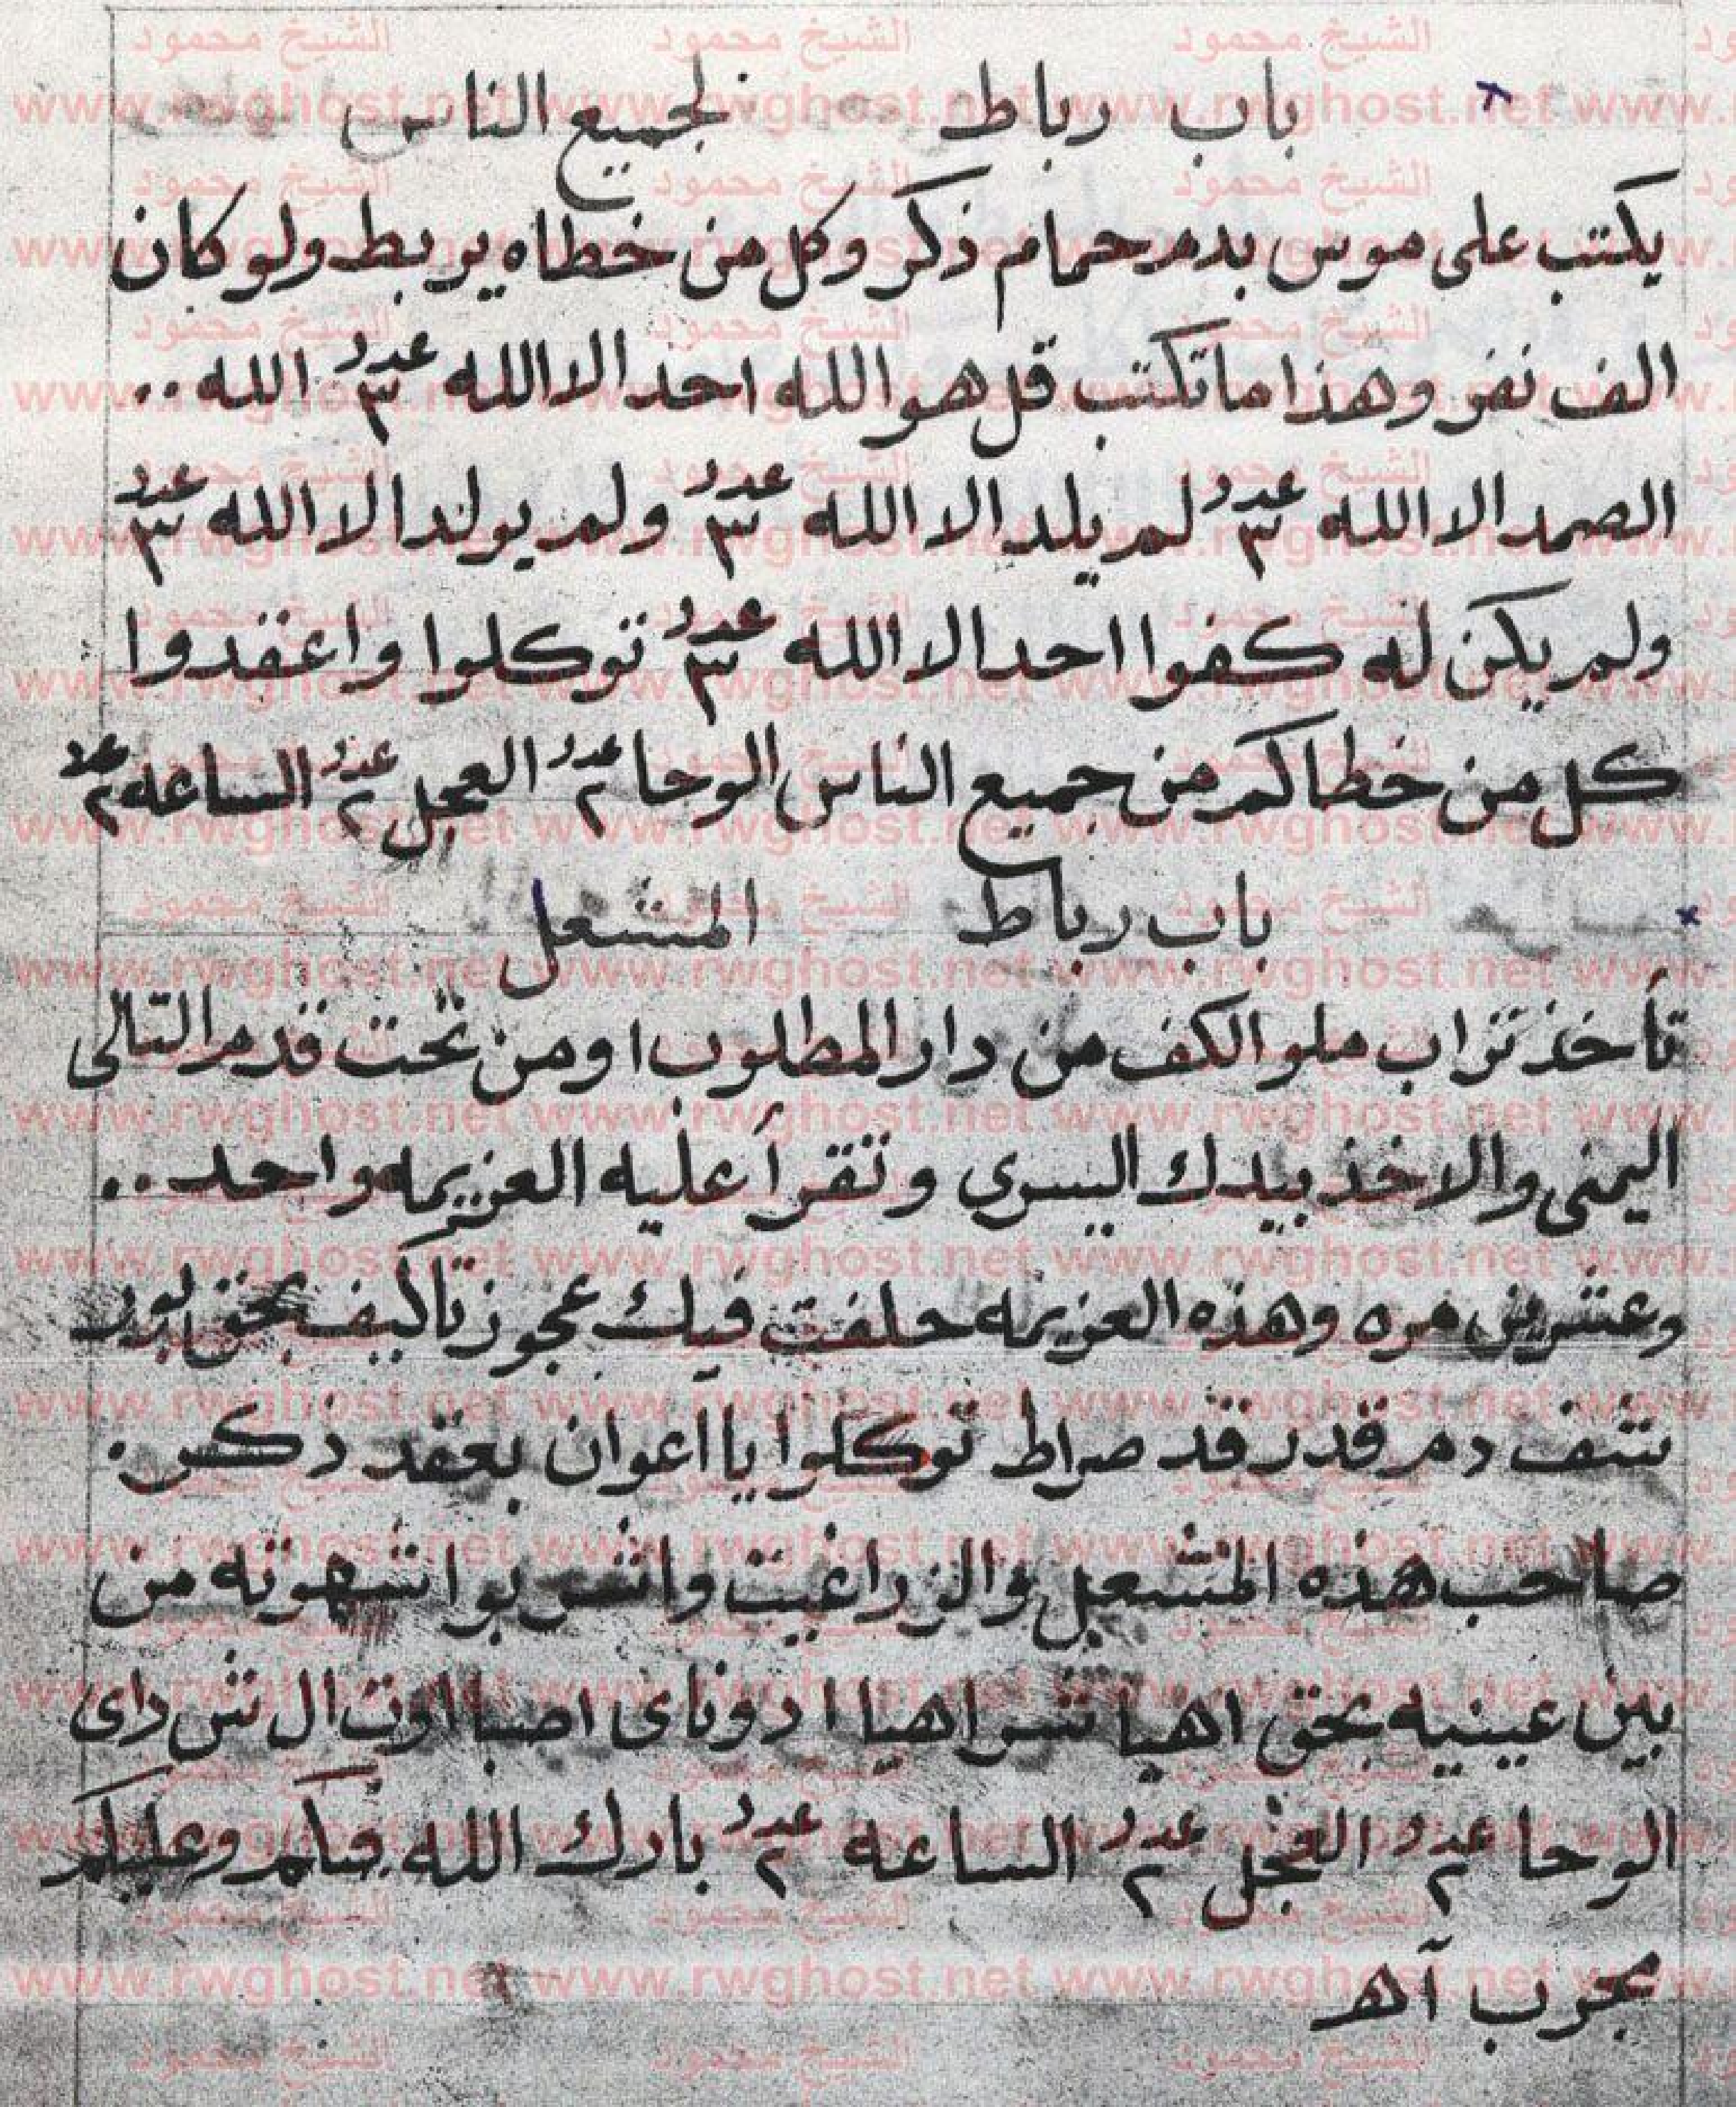 باب رباط لجميع الناس
يكتب على موس بدم حمام ذكر وكل من خطاه يربط ولو كان
الف نفر وهذا ما تكتب قل هو الله احد الا الله عدد ٣ الله ..
الصمد الا الله عدد ٣ لم يلد الا الله عدد ٣ ولم يولد الا الله عدد ٣
ولم يكن له كفوا احد الا الله عدد ٣ توكلوا واعقدوا
كل من خطاكم من جميع الناس الوحا عدد ٢ العجل عدد ٢ الساعه عدد ٢
باب رباط المشعل
تأخذ تراب ملو الكف من دار المطلوب او من تحت قدم التالى
اليمنى والاخذ بيدك اليسرى وتقرأ عليه العزيمه واحد ..
وعشرين مره وهذه العزيمه حلفت فيك عجوز تاكيف بحق
شف دم قدر قد صراط توكلوا يا اعوان بعقد ذكر .
صاحب هذه المشعل واشربوا شهوته من
بين عينيه بحق اهيا شراهيا ادوناى اصباوت ال ش داى
الوحا عدد ٢ العجل عدد ٢ الساعه عدد ٢ بارك الله فيكم وعليكم
مجرب آهـ
الشيخ محمود
www.rwghost.net